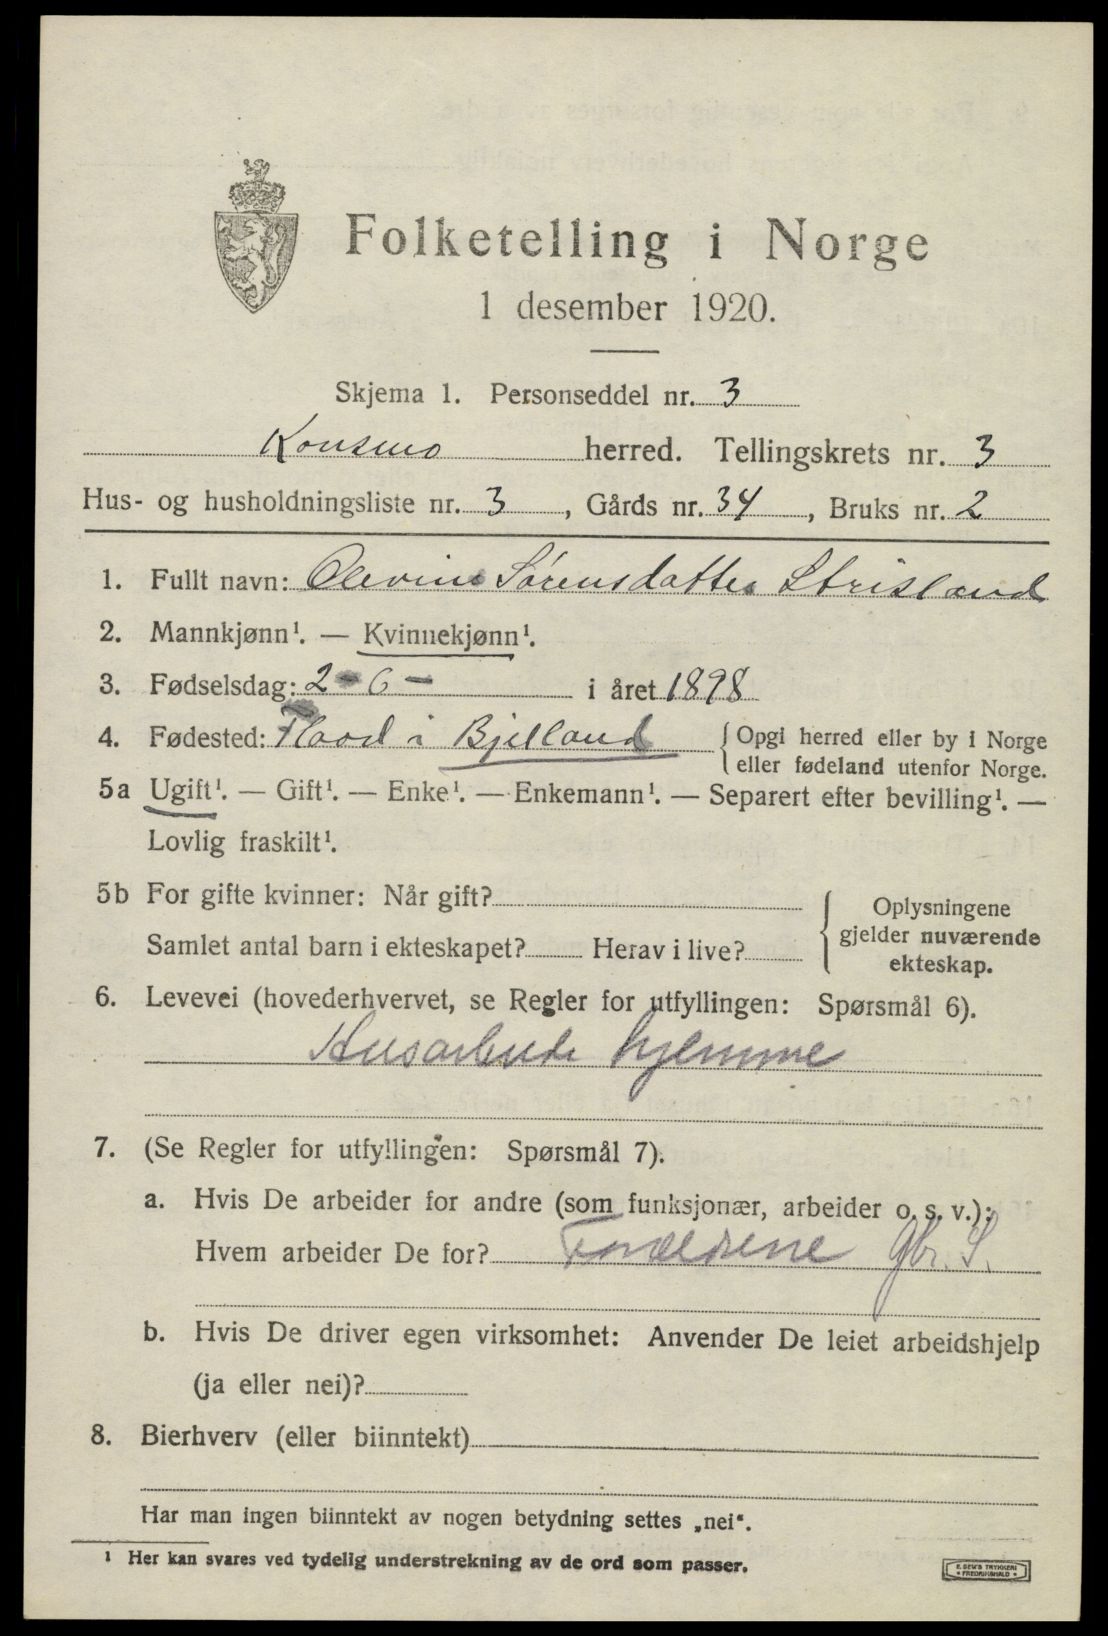 Folketelling i Norge
1 desember 1920.
Skjema 1. Personseddel nr. 3
Konsmo herred. Tellingskrets nr. 3
Hus- og husholdningsliste nr. 3, Gårds nr. 34, Bruks nr. 2
1. Fullt navn: Olevine Sørensdatter Strisland
2. Mannkjønn¹. — Kvinnekjønn¹.
3. Fødselsdag: 2-6- i året 1898
4. Fødested: i Bjelland {Opgi herred eller by i Norge
eller fødeland utenfor Norge.
5a Ugift¹. — Gift¹. — Enke¹. — Enkemann¹. — Separert efter bevilling¹. —
Lovlig fraskilt¹.
5b For gifte kvinner: Når gift?
Samlet antal barn i ekteskapet? Herav i live?
Oplysningene
gjelder nuværende
ekteskap.
6. Levevei (hovederhvervet, se Regler for utfyllingen: Spørsmål 6).
Husarbeide hjemme
7. (Se Regler for utfyllingen: Spørsmål 7).
a. Hvis De arbeider for andre (som funksjonær, arbeider o. s. v.):
Hvem arbeider De for? Forældrene Gbr. S.
b. Hvis De driver egen virksomhet: Anvender De leiet arbeidshjelp
(ja eller nei)?
8. Bierhverv (eller biinntekt)
Har man ingen biinntekt av nogen betydning settes „nei“.
¹ Her kan svares ved tydelig understrekning av de ord som passer.
E. SEM'S TRYKKERI
FREDRIKSHALD